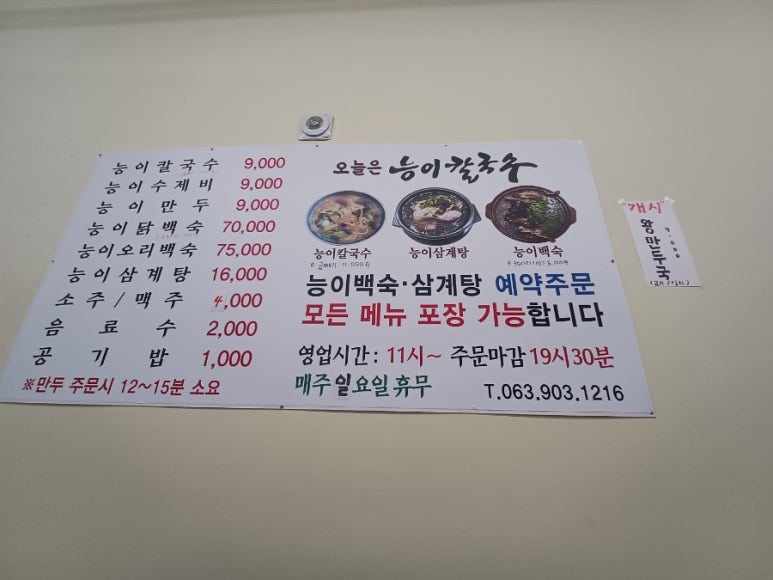 능이칼국수 9,000
능이수제비 9,000
능이만두 9,000
능이닭백숙 70,000
능이오리백숙 75,000
능이삼계탕 16,000
소주/맥주 4,000
음료수 2,000
공기밥 1,000
※만두 주문시 12~15분 소요
오늘은 능이칼국수
능이칼국수 능이삼계탕 능이백숙
곱빼기 11,000원
능이백숙·삼계탕 예약주문
모든 메뉴 포장 가능합니다
영업시간: 11시~ 주문마감 19시30분
매주 일요일 휴무
T.063.903.1216
개시
왕만두국
9,000